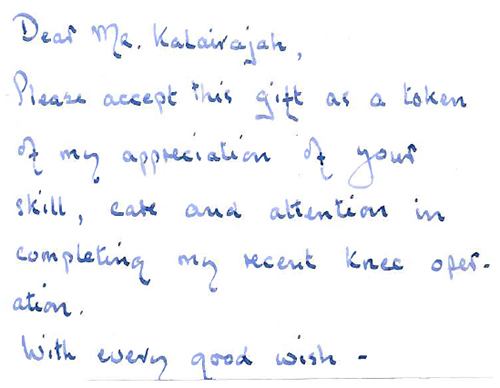 Dear Mr. Kalairajah,
Please accept this gift as a token
of my appreciation of your
skill, care and attention in
completing my recent knee oper-
ation.
With every good wish -